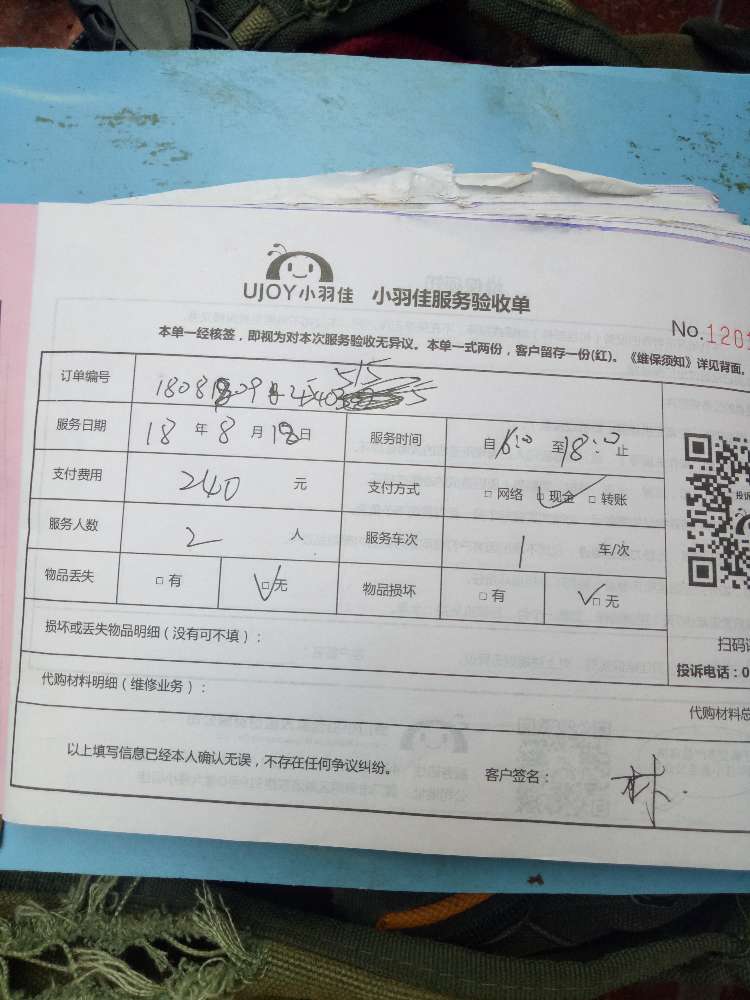 UJOY小羽佳 小羽佳服务验收单
No.1201
本单一经核签，即视为对本次服务验收无异议。本单一式两份，客户留存一份(红)。《维保须知》详见背面。
订单编号
服务日期 18 年 8 月 18 日 服务时间 自 6:00 至 18:00 止
支付费用 240 元 支付方式 □ 网络 □ 现金 □ 转账
投诉
服务人数 2 人 服务车次 1 车/次
物品丢失 □ 有 □ 无 物品损坏 □ 有 □ 无
损坏或丢失物品明细（没有可不填）：
扫码
投诉电话：0
代购材料明细（维修业务）：
代购材料总
以上填写信息已经本人确认无误，不存在任何争议纠纷。 客户签名： 林